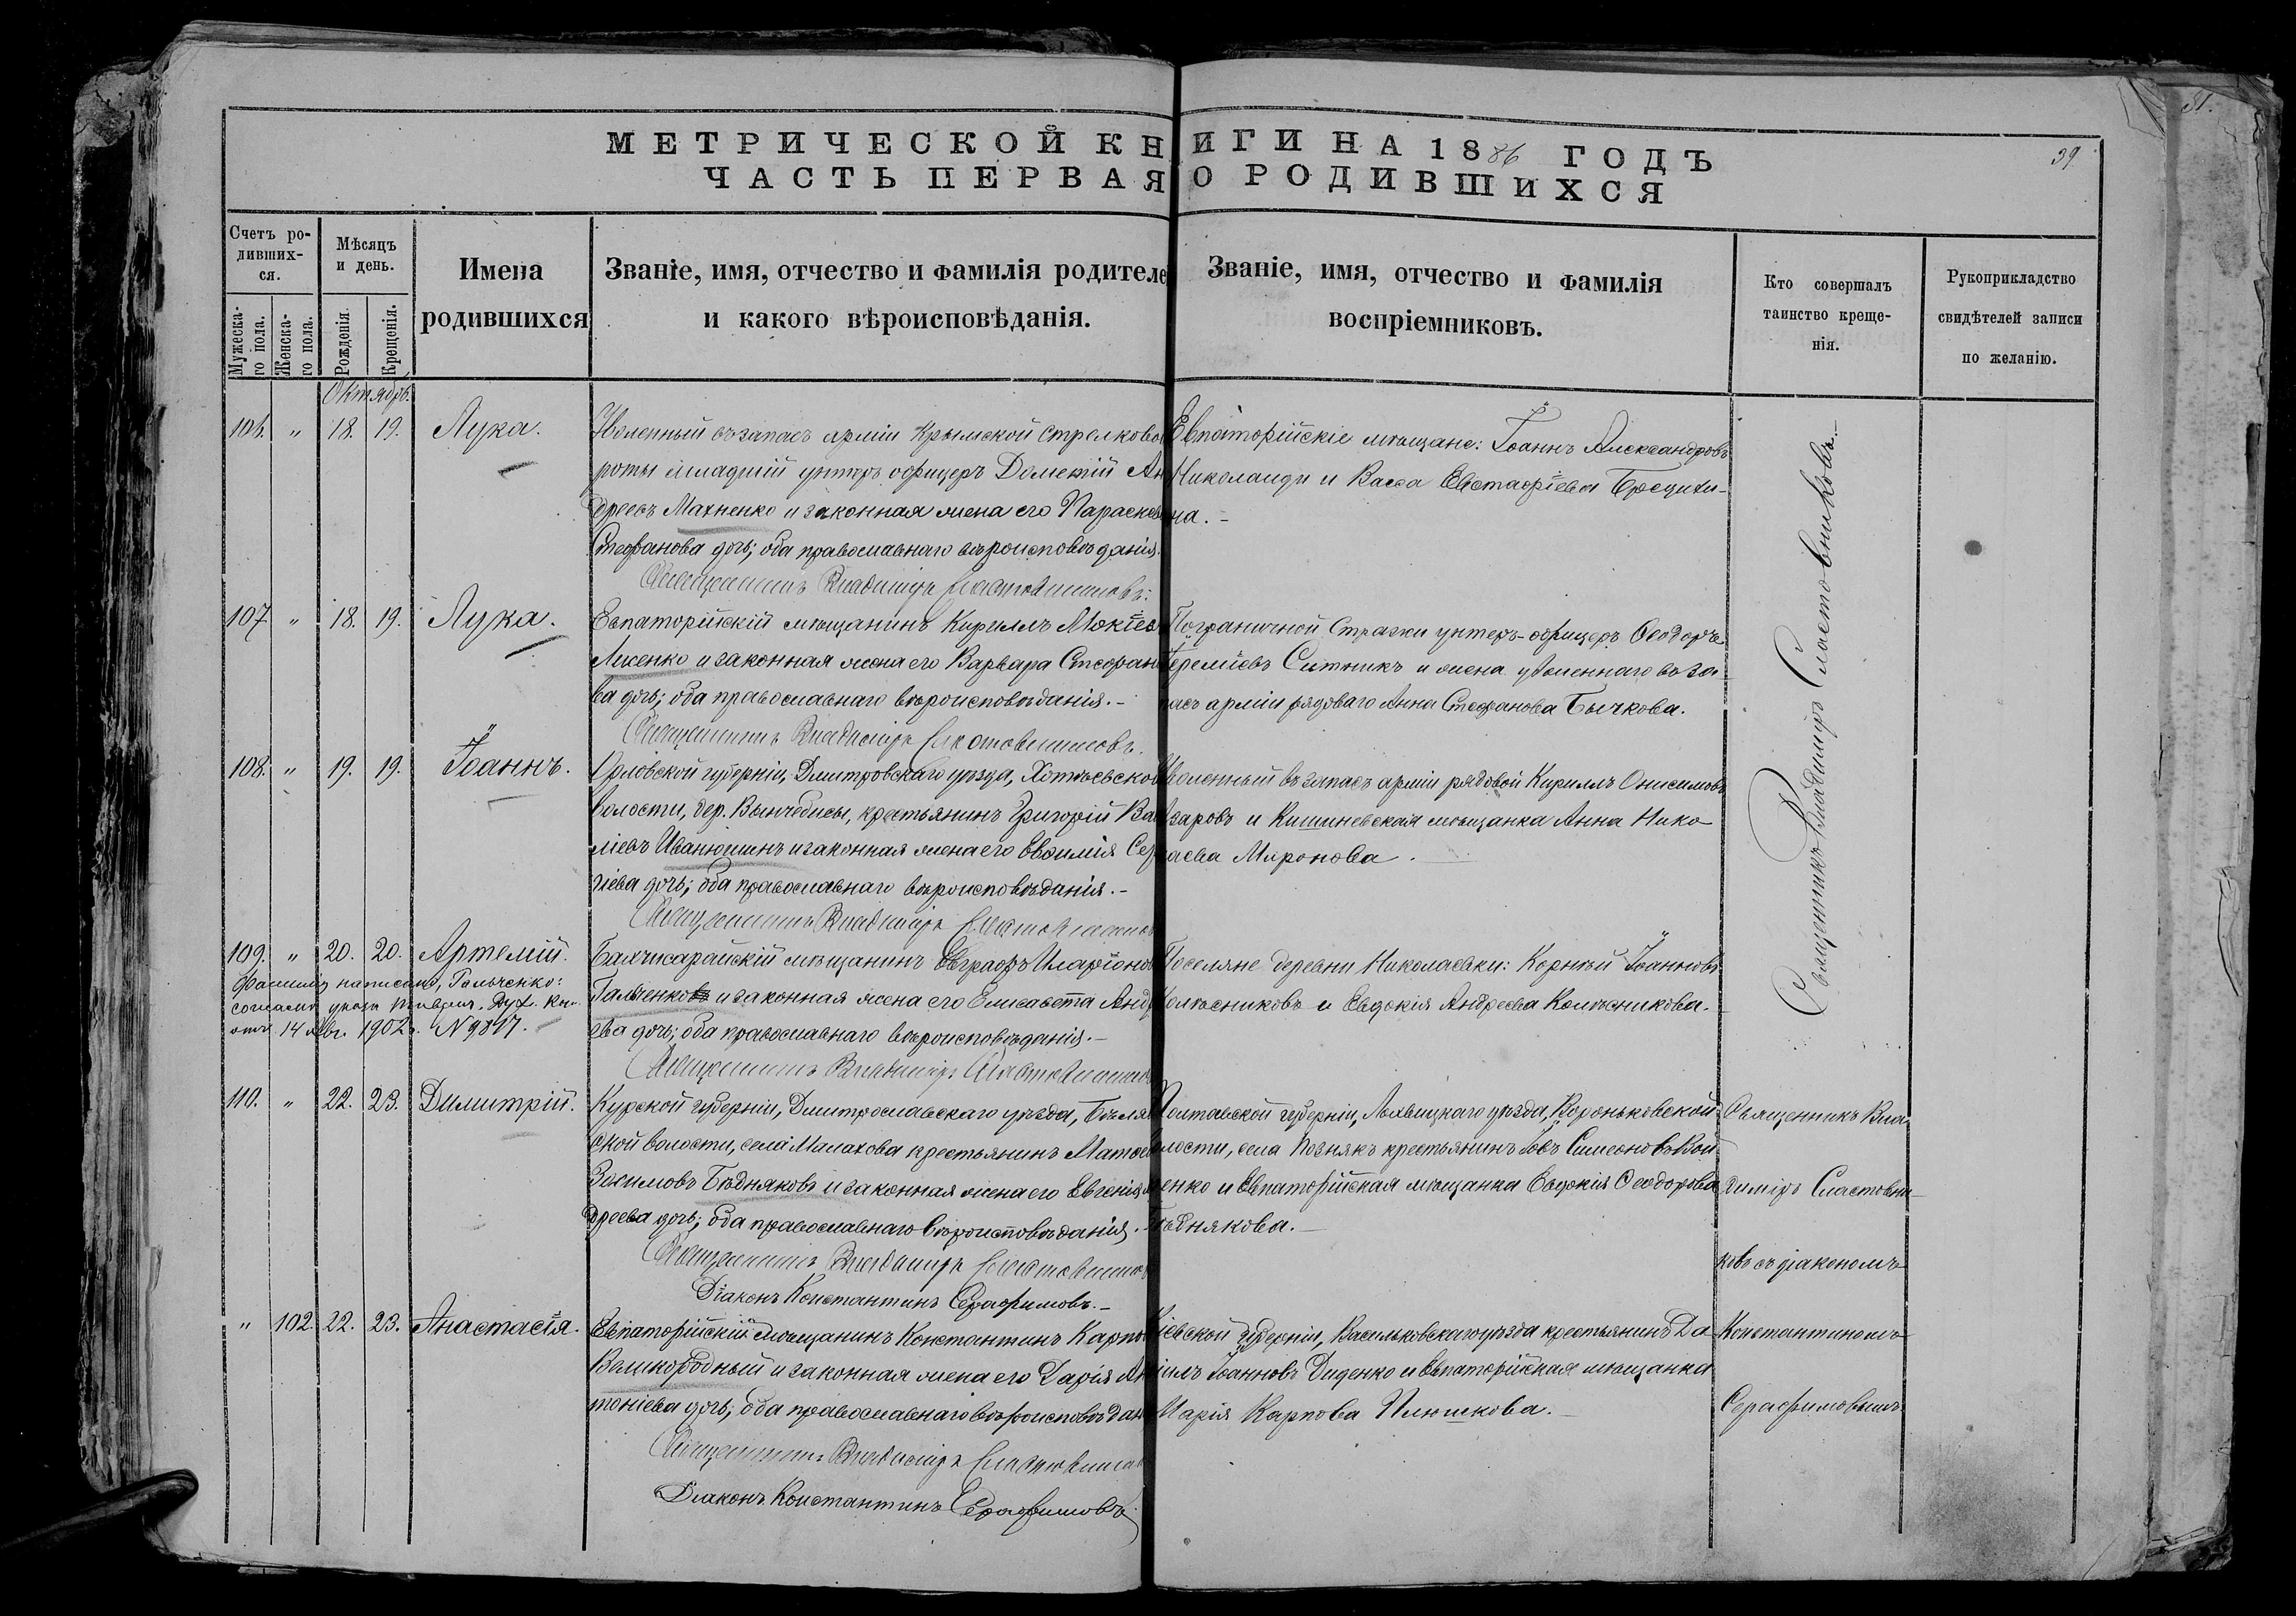 31.
39
МЕТРИЧЕСКОЙ КНИГИ НА 1886 ГОДЪ
ЧАСТЬ ПЕРВАЯ О РОДИВШИХСЯ
Счетъ ро-
дивших-
ся.
Мужеска-
го пола.
Женска-
го пола.
Мѣсяцъ
и день.
Рожденія.
Крещенія.
Имена
родившихся
Званіе, имя, отчество и фамилія родителе
и какого вѣроисповѣданія.
Званіе, имя, отчество и фамилія
воспріемниковъ.
Кто совершалъ
таинство креще-
нія.
Рукоприкладство
свидѣтелей записи
по желанію.
Октябрь.
106. " 18. 19. Лука.
Уволенный въ запасъ арміи Крымской стрелковой
роты младшій унтеръ офицеръ Дометій Ан
дреевъ Махненко и законная жена его Параскева
Стефанова дочь; оба православнаго вѣроисповѣданія.
Священникъ Владиміръ Сластовниковъ.
Евпаторійскіе мѣщане: Іоаннъ Александровъ
Николаиди и Васса Евстафіева
на.-
Священникъ Владиміръ Сластовниковъ.-
107 " 18. 19. Лука.
Евпаторійскій мѣщанинъ Кириллъ Мокіев
Лисенко и законная жена его Варвара Стефан
ва дочь; оба православнаго вѣроисповѣданія.-
Священникъ Владиміръ Сластовниковъ.
Пограничной Стражи унтеръ-офицеръ Ѳеодоръ
Іереміевъ Ситникъ и жена уволеннаго въ за-
пасъ арміи рядоваго Анна Стефанова Бычкова.
108. " 19. 19. Іоаннъ.
Орловской губерніи, Дмитровскаго уѣзда, Хотьевской
волости, дер. крестьянинъ Григорій Ва
ліевъ Иванюшинъ и законная жена его Евфимія Сер
гіева дочь; оба православнаго вѣроисповѣданія.-
Священникъ Владиміръ Сластовников
Уволенный въ запасъ арміи рядовой Кириллъ Онисимовъ
Азаровъ и Кишиневская мѣщанка Анна Нико-
лаева Миронова.
109. " 20. 20. Артемій.
Фамилія написана, Гальченко:
согласно указа Тавричь. Дух. Кон.
отъ 14 Авг. 1902 г. N 9817.
Бахчисарайскій мѣщанинъ Евграфъ Иларіонов
Гальченковъ и законная жена его Елисавета Анд
ева дочь; оба православнаго вѣроисповѣданія.-
Священникъ Владиміръ Сластовников
Поселяне деревни Николаевки: Корнѣй Іоанновъ
Колѣсниковъ и Евдокія Андреева Колѣсникова.
110. " 22. 23. Димитрій.
Курской губерніи, Дмитрославскаго уѣзда, Бѣля
ской волости, села Малахова крестьянинъ Матѳе
Зосимовъ Бѣдняковъ и законная жена его Евгенія
дреева дочь; оба православнаго вѣроисповѣданія.
Священникъ Владиміръ Сластовников
Діаконъ Константинъ Серафимовъ.-
Полтавской губерніи, Лохвицкаго уѣзда, Вороньковской
волости, села Позняк крестьянинъ Іовъ Симеоновъ Вой
ценко и Евпаторійская мѣщанка Евдокія Ѳеодорова
Бѣднякова.-
Священникъ Вла-
диміръ Сластовни-
ковъ съ діакономъ
Константиномъ
Серафимовымъ
" 102. 22. 23. Анастасія.
Евпаторійскій мѣщанинъ Константинъ Карпо
Великородный и законная жена его Дарія Ан
тоніева дочь; оба православнаго вѣроисповѣдан
Священникъ Владиміръ Сластовников
Діаконъ Константинъ Серафимовъ.
Кіевской губерніи, Васильковскаго уѣзда крестьянинъ Да
ніилъ Іоанновъ Диденко и Евпаторійская мѣщанка
Марія Карпова Плюшкова.-